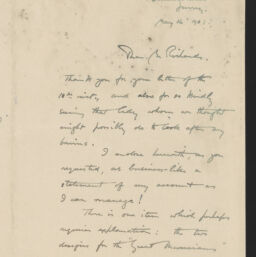 Surrey.
May 16 190
Dear Mr Richards,
Thank you for your letter of the
10th inst., and also for so kindly
seeing that lady whom we thought
might possibly do to look after my
I enclose herewith, as you
requested, as business-like a
statement of my account as
I can manage!
There is one item which perhaps
requires explanation: the two
designs for the "Great Musicians"